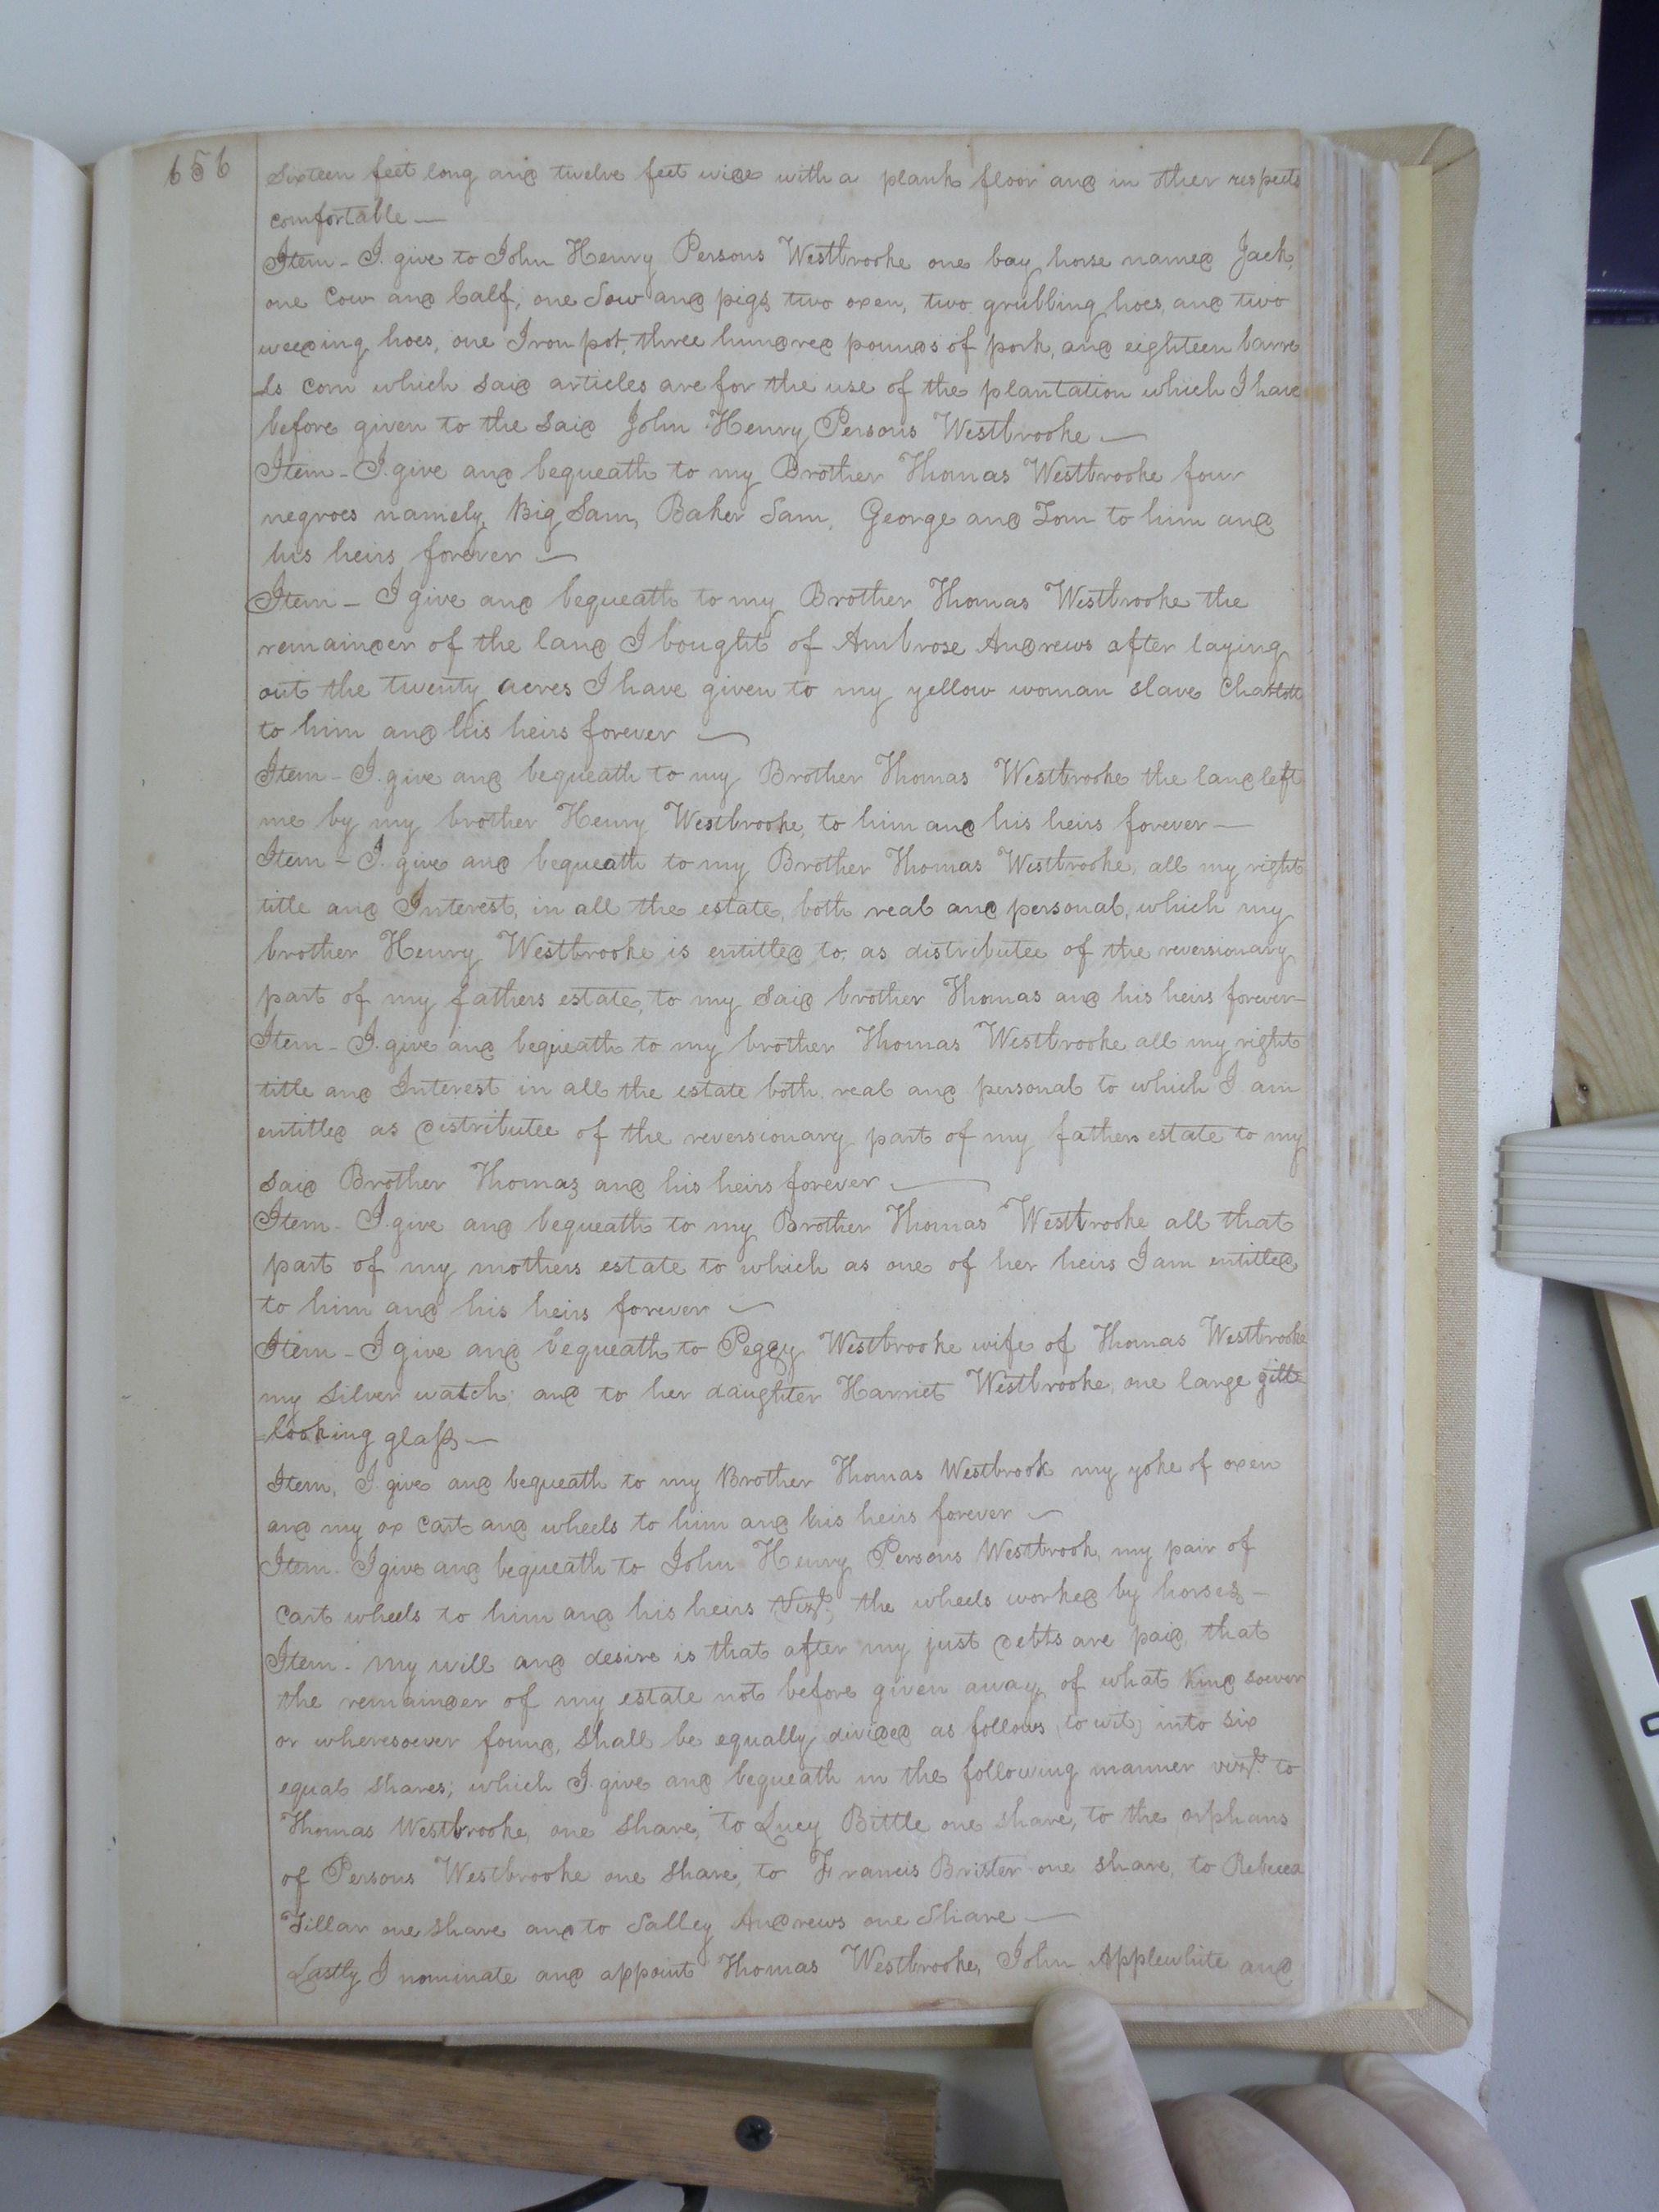 656
Sixteen feet long and twelve feet wide with a plank floor and in other respects
comfortable —
Item - I give to John Henry Persons Westbrooke one bay horse named Jack,
one Cow and Calf, one Sow and pigs, two oxen, two grubbing hoes, and two
weeding hoes, one Iron pot, three hundred pounds of pork, and eighteen barre
ls corn which said articles are for the use of the plantation which I have
before given to the said John Henry Persons Westbrooke —
Item - I give and bequeath to my Brother Thomas Westbrooke four
negroes namely, Big Sam, Baker Sam, George and Tom to him and
his heirs forever —
Item - I give and bequeath to my Brother Thomas Westbrooke the
remainder of the land I bought of Ambrose Andrews after laying
out the twenty acres I have given to my yellow woman slave Charlott
to him and his heirs forever —
Item - I give and bequeath to my Brother Thomas Westbrooke the land left
me by my brother Henry Westbrooke, to him and his heirs forever —
Item - I give and bequeath to my Brother Thomas Westbrooke, all my right
title and Interest, in all the estate, both real and personal, which my
brother Henry Westbrooke is entitled to, as distributee of the reversionary
part of my fathers estate, to my said brother Thomas and his heirs forever -
Item - I give and bequeath to my brother Thomas Westbrooke all my right
title and Interest in all the estate both real and personal to which I am
entitled as distributee of the reversionary part of my fathers estate to my
said Brother Thomas and his heirs forever —
Item - I give and bequeath to my Brother Thomas Westbrooke all that
part of my mothers estate to which as one of her heirs I am entitled
to him and his heirs forever —
Item - I give and bequeath to Peggy Westbrooke wife of Thomas Westbrooke
my silver watch, and to her daughter Harriet Westbrooke, one large gilt
looking glass —
Item, I give and bequeath to my Brother Thomas Westbrook my yoke of oxen
and my ox Cart and wheels to him and his heirs forever —
Item - I give and bequeath to John Henry Persons Westbrook, my pair of
Cart wheels to him and his heirs (Vizt.) the wheels worked by horses -
Item - my will and desire is that after my just debts are paid, that
the remainder of my estate not before given away of what kind soever
or wheresoever found, shall be equally divided as follows (to wit) into six
equal shares; which I give and bequeath in the following manner vizt. to
Thomas Westbrooke, one share, to Lucy Bittle one share, to the orphans
of Persons Westbrooke one share, to Francis Brister one share, to Rebecca
Tillar one share and to Salley Andrews one share —
Lastly I nominate and appoint Thomas Westbrooke, John Applewhite and